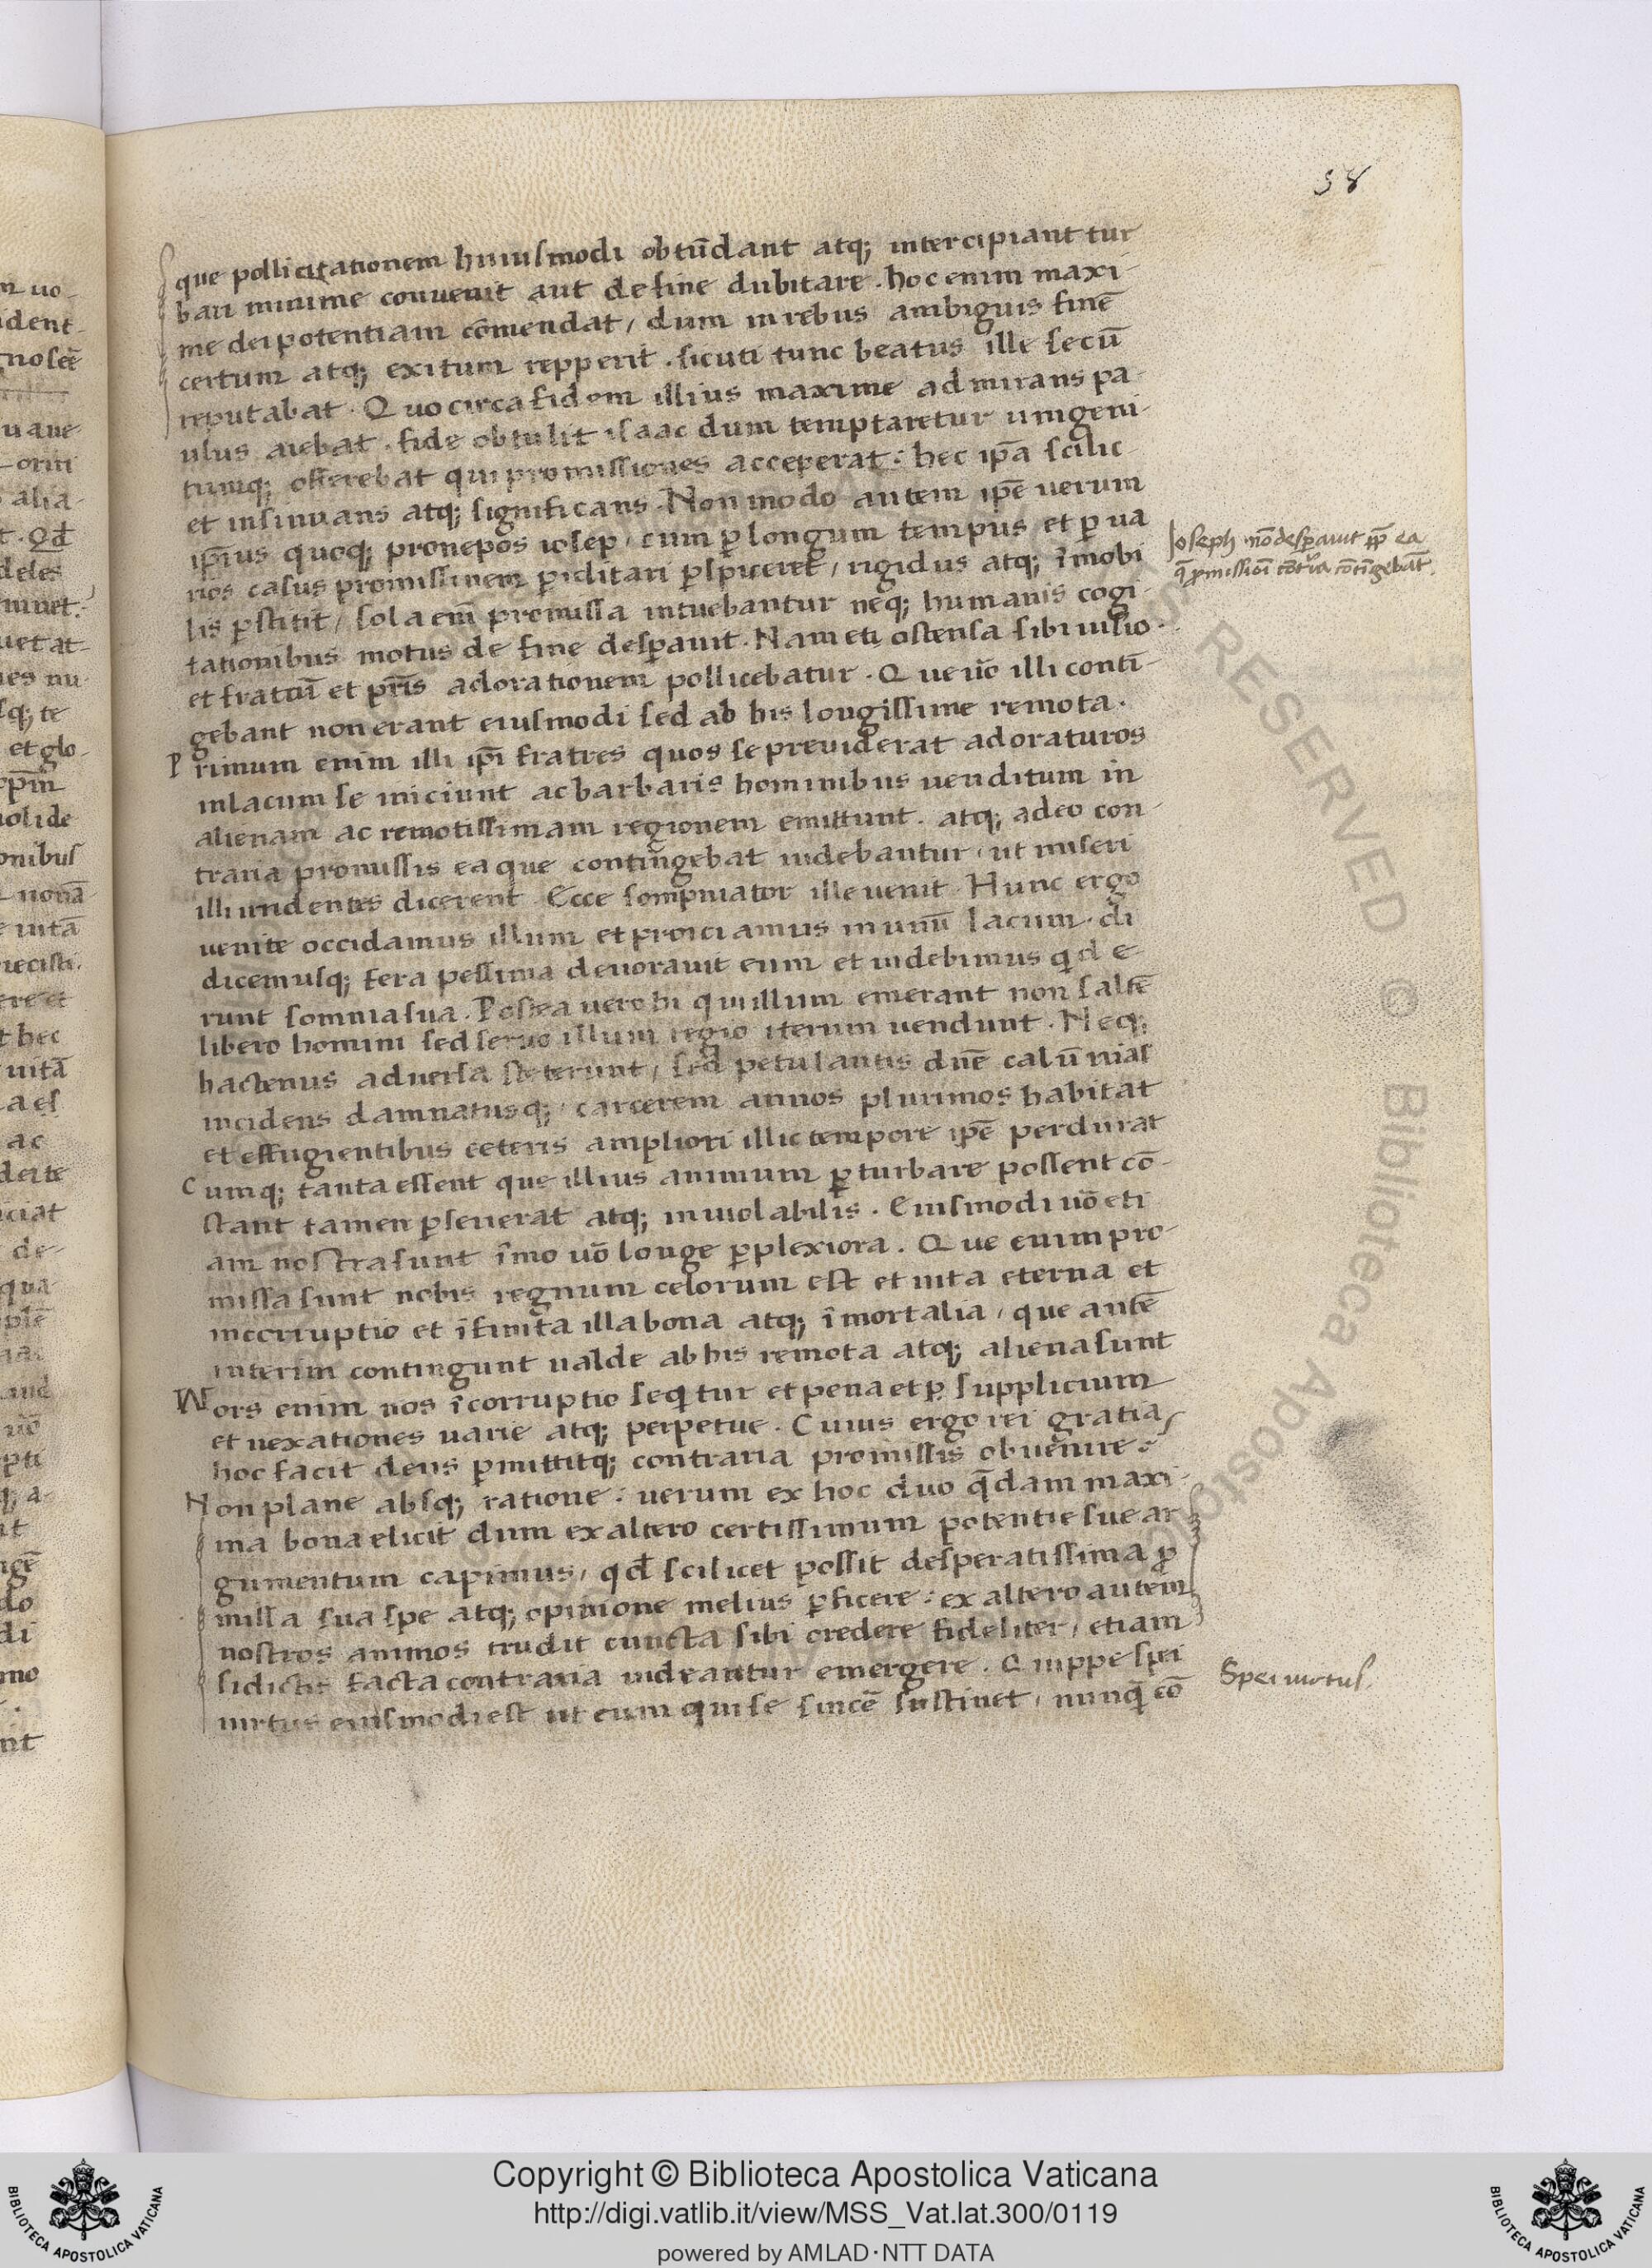 58
que pollicitationem huiusmodi obtūdant atq; intercipiant tur
bari minime conuenit aut de fine dubitare. hoc enim maxi-
me dei potentiam cōmendat, dum in rebus ambiguis finē
certum atq; exitum repperit. sicuti tunc beatus ille secū
reputabat. Quocirca fidem illius maxime admirans pa-
ulus aiebat. fide obtulit isaac dum temptaretur unigeni-
tumq; offerebat qui promissiones acceperat: hec ip̄a scilic
et insinuans atq; significans. Non modo autem ip̄e uerum
ip̄ius quoq; pronepos iosep, cum ꝑ longum tempus et ꝑ ua
rios casus promissinem ꝑiditari ꝑspiceret, rigidus atq; īmobi
lis ꝑstitit, sola em̄ promissa intuebantur neq; humanis cogi-
tationibus motus de fine desꝑauit. Nam eti ostensa sibi uisio.
et fratuū et pr̄is adorationem pollicebatur. Que uō illi contī-
gebant non erant eiusmodi sed ab his longissime remota.
Primum enim illi ip̄i fratres quos se preuiderat adoraturos
in lacum se iniciunt ac barbaris hominibus uenditum in
alienam ac remotissimam regionem emittunt. atq; adeo con-
traria promissis ea que contingebat uidebantur, ut miseri
illi irridentes dicerent. Ecce sompniator ille uenit. Hunc ergo
uenite occidamus illum et proiciamus in unū lacum. di
dicemusq; fera pessima deuorauit eum et uidebimus qd e-
runt somnia sua. Postea uero hi qui illum emerant non saltē
libero homini sed seruo illum regio iterum uendunt. Neq;
hactenus aduersa steterunt, sed petulantis dn̄e calūnias
incidens damnatusq;, carcerem annos plurimos habitat
et effugientibus ceteris ampliori illic tempore ip̄e perdurat
Cumq; tanta essent que illius animum ꝑturbare possent cō-
stant tamen ꝑseuerat atq; inuiolabilis. Eiusmodi uō eti
am nostra sunt īmo uō longe ꝑplexiora. Que enim pro-
missa sunt nobis regnum celorum est et uita eterna et
incorruptio et īfinita illa bona atq; īmortalia, que autē
interim contingunt ualde ab his remota atq; aliena sunt
Mors enim nos īcorruptio seqtur et pena et ꝑ supplicium
et uexationes uarie atq; perpetue. Cuius ergo rei gratia
hoc facit deus ꝑmittitq; contraria promissis obuenire?
Non plane absq; ratione: uerum ex hoc duo q̄dam maxi-
ma bona elicit dum ex altero certissimum potentie sue ar
gumentum capimus, qđ scilicet possit desperatissima ꝓ
missa sua spe atq; opinione melius ꝑficere: ex altero autem
nostros animos trudit cuncta sibi credere fideliter, etiam
si dictis facta contraria uideantur emergere. Quippe spei
uirtus eiusmodi est ut eum qui se sincē sustinet, nunq̄ cō
Ioseph nō desꝑauit ꝓp ea
q̄ ꝓmissioī cōtraria cōtīgebāt.
Spei uirtus.
RESERVED © Biblioteca Apostolica
Copyright © Biblioteca Apostolica Vaticana
http://digi.vatlib.it/view/MSS_Vat.lat.300/0119
powered by AMLAD·NTT DATA
BIBLIOTECA APOSTOLICA VATICANA
BIBLIOTECA APOSTOLICA VATICANA